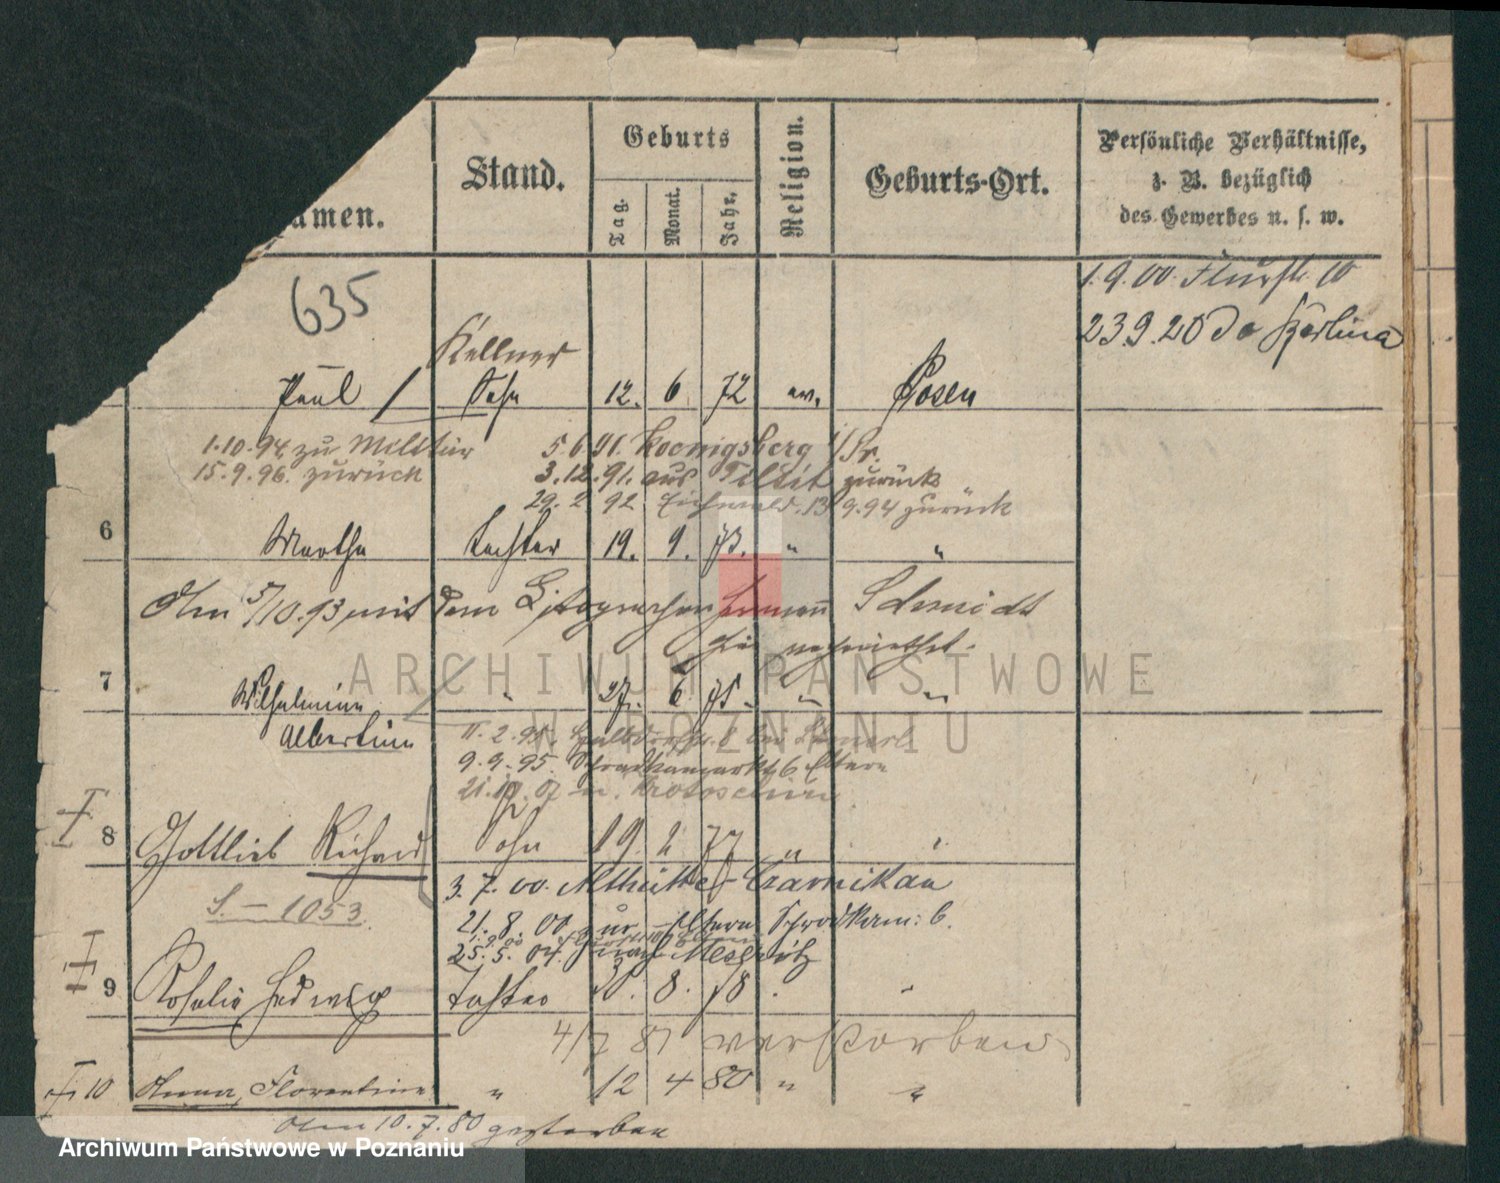 amen.
Stand.
Geburts
Tag.
Monat.
Jahr.
Religion.
Geburts-Ort.
Persönliche Verhältnisse,
z. B. bezüglich
des Gewerbes u. s. w.
635
1.9.00. Flurstr. 10
23.9.20
Kellner
Paul / Sohn 12. 6 72 ev. Posen
1.10.94 zu Militär 5.6.91. Koenigsberg i/Pr.
15.9.96. zurück 3.12.91. aus Tilsit zurück
29. 2 92 Eichwald. 13 9.94 zurück
6 Martha Tochter 19. 9. 73. " "
Am 5/10.93 mit dem Hermann Schmidt
hier verheirathet.
7 Wilhelmine " 27. 6 75. " "
Albertine
11.2.95.
9.9.95. Schrodkamarkt 6 Eltern
21.10.07 n. Krotoschin
8 Gottlieb Richard Sohn 19. 2 77 " "
S. — 1053.
3.7.00. Althütte-Czarnikau
21.8.00 zur. Eltern Schrodkam: 6.
25.5.04. nach Meseritz
9 Rosalie Hedwig Tochter 31. 8. 78 . "
4/7 81 verstorben
10 Anna, Florentine " 12 4 80 " "
Am 10.7.80 gestorben
ARCHIWUM PAŃSTWOWE
W POZNANIU
Archiwum Państwowe w Poznaniu